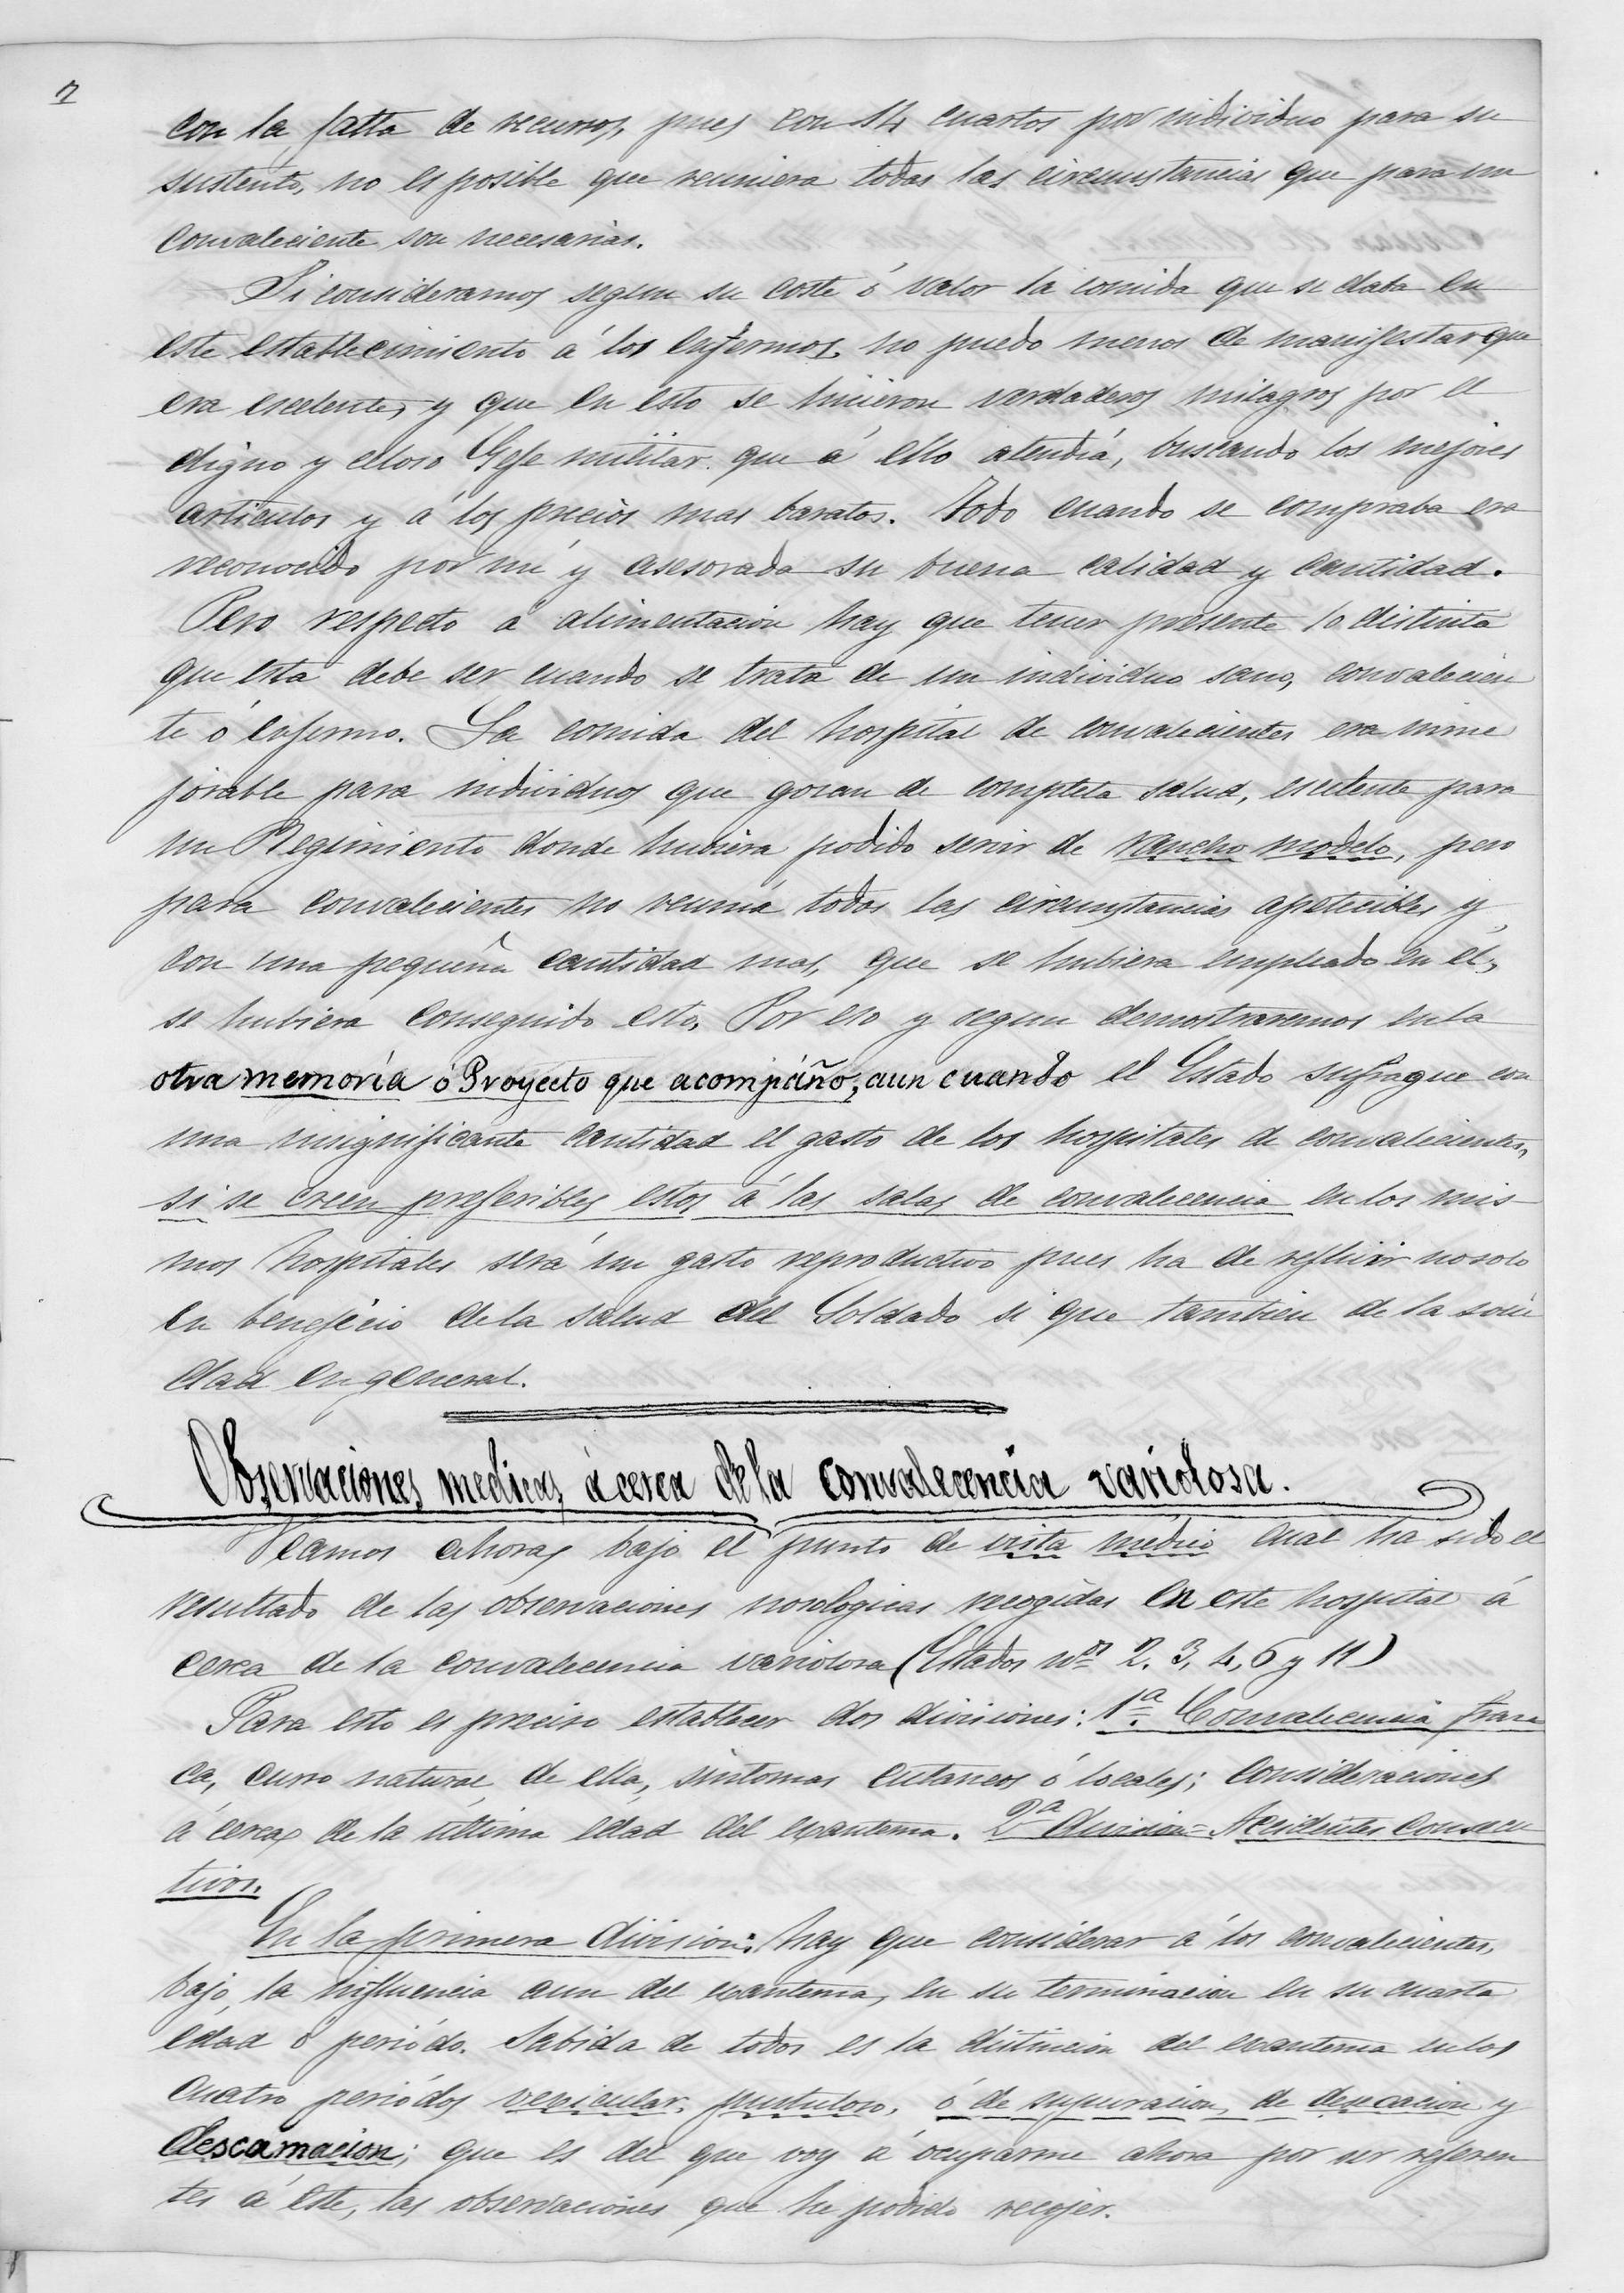 7
con la falta de recursos, pues con 14 cuartos por individuo para su
sustento, no es posible que reuniera todas las circunstancias que para un
convaleciente son necesarias.
Si consideramos segun su coste ó valor la comida que se daba en
este establecimiento á los enfermos, no puedo menos de manifestar que
era escelente, y que en esto se hicieron verdaderos milagros por el
digno y celoso Gefe militar que á ello atendiá, buscando los mejores
articulos y á los precios mas baratos. Todo cuando se compraba era
reconocido por mi y asesorada su buena calidad y cantidad.
Pero respecto á alimentacion hay que tener presente lo distinta
que esta debe ser cuando se trata de un individuo sano, convalecien
te ó enfermo. La comida del hospital de convalecientes era inme
jorable para individuos que gozan de completa salud, escelente para
un Regimiento donde hubiera podido servir de rancho modelo, pero
para convalecientes no reunía todas las circunstancias apetecibles y
con una pequeña cantidad mas, que se hubiera empleado en él,
se hubiera conseguido esto. Por eso y segun demostraremos en la
otra memoria ó Proyecto que acompáño, aun cuando el Estado sufrague con
una insignificante cantidad el gasto de los hospitales de convalecientes,
si se creen preferibles estos á las salas de convalecencia en los mis
mos hospitales será un gasto reproductivo pues ha de refluir no solo
en beneficio de la salud del Soldado si que tambien de la socie
dad en general.
Observaciones medicas á cerca de la convalecencia variolosa.
Veamos ahora, bajo el punto de vista médico cual ha sido el
resultado de las observaciones nosologicas recogidas en este hospital á
cerca de la convalecencia variolosa (Estados nos 2, 3, 4, 6 y 11)
Para esto es preciso establecer dos divisiones: 1ª. Convalecencia fran
ca, curso natural, de ella, sintomas cutaneos ó locales; consideraciones
á cerca de la última edad del exantema. 2ª division = Accidentes consecu
tivos.
En la primera division: hay que considerar á los convalecientes,
bajo, la influencia aun del exantema, en su terminacion en su cuarta
edad ó periódo. Sabida de todos es la distincion del exantema en los
cuatro periódos vesicular, pustuloso, ó de supuracion, de desecacion y
descamacion; que es del que voy á ocuparme ahora por ser referen
tes á este, las observaciones que he podido recojer.